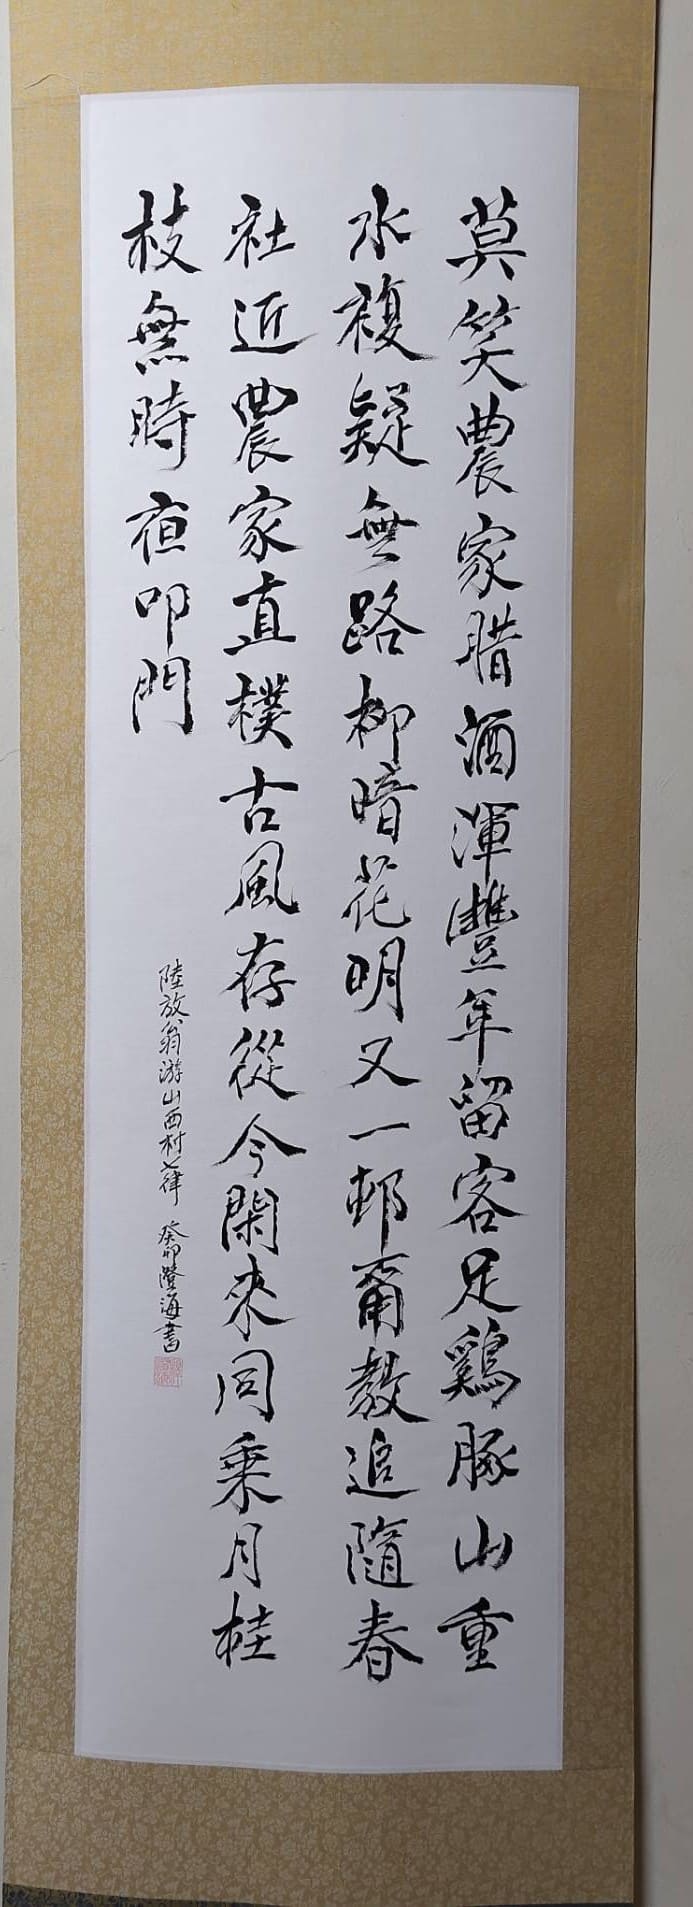 莫笑農家腊酒渾豐年留客足鷄豚山重
水複疑無路柳暗花明又一邨爾教追隨春
社近農家直樸古風存從今閑來同乘月桂
枝無時夜叩門
陸放翁游山西村七律 癸卯澄海書